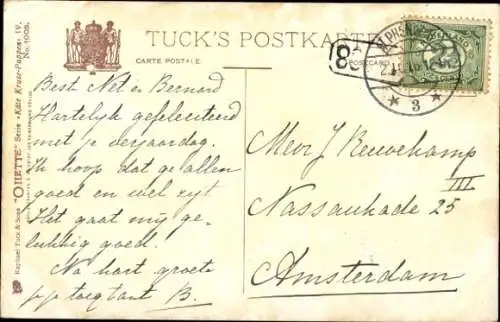 TUCK'S POSTKARTE
CARTE POSTALE.
POSTCARD.
8
3
NEDERLAND
Raphael Tuck & Sons "OILETTE" Serie «Käte Kruse-Puppen» IV.
No. 1005.
Best Net en Bernard
Hartelijk gefeliciteerd
met je verjaardag.
Ik hoop dat ge allen
goed en wel zijt
Het gaat mij ge-
lukkig goed.
Na hart groete
tante B.
Mevr J Beuvekamp
III
Nassaukade 25
Amsterdam